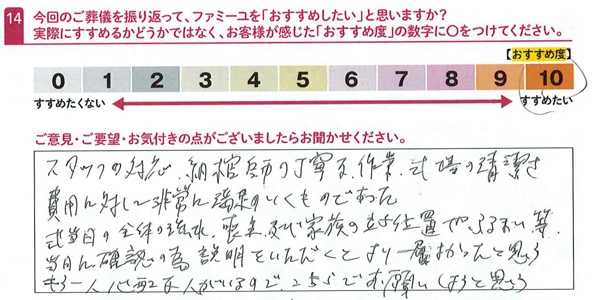 14 今回のご葬儀を振り返って、ファミーユを「おすすめしたい」と思いますか？
実際にすすめるかどうかではなく、お客様が感じた「おすすめ度」の数字に○をつけてください。
【おすすめ度】
0 1 2 3 4 5 6 7 8 9 10
すすめたくない すすめたい
ご意見・ご要望・お気付きの点がございましたらお聞かせください。
スタッフの対応、納棺師の丁寧な作業、式場の清潔さ
費用に対して非常に満足のいくものであった
式当日の全体の流れ、喪主及び家族の立ち位置や、ふるまい等、
当日に確認の為説明をいただくとより一層よかったと思う
もう一人心配な人がいるので、こちらでお願いしようと思う